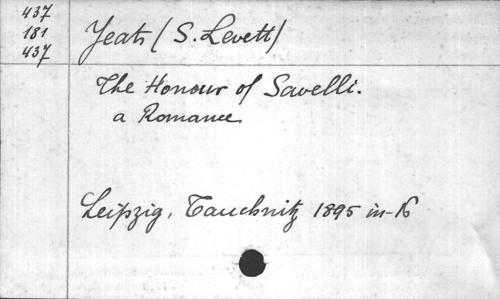 437
181
437
Yeats (S. Levett)
The Honour of Savelli.
a Romance
Leipzig, Tauchnitz 1895 in-16